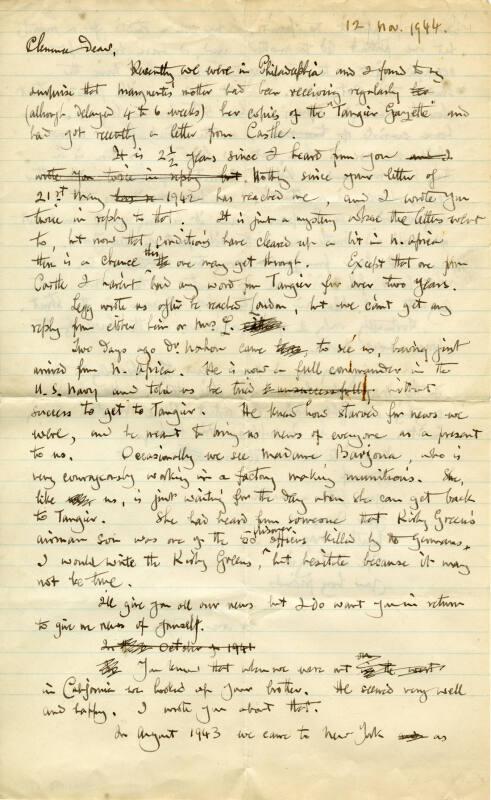 12 Nov. 1944.
Clemence dear,
Recently we were in Philadelphia and I found to my
surprise that Marguerite's mother had been receiving regularly
(although delayed 4 to 6 weeks) her copies of the "Tangier Gazette" and
had got recently a letter from Castle.
It is 2½ years since I heard from you and I
wrote you twice in reply but. Nothing since your letter of
21st May 1942 has reached me, and I wrote you
twice in reply to that. It is just a mystery where the letters went
to, but now that conditions have cleared up a bit in N. Africa
there is a chance this one may get through. Except that one from
Castle I haven't had any word from Tangier for over two years.
Legg wrote us after he reached London, but we can't get any
reply from either him or Mrs L.
Two days ago Dr. came to see us, having just
arrived from N. Africa. He is now a full commander in the
U.S. Navy and told us he tried unsuccessfully without
success to get to Tangier. He knew how starved for news we
were, and he meant to bring us news of everyone as a present
to us. Occasionally we see Madame, who is
very courageously working in a factory making munitions. She,
like us, is just waiting for the day when she can get back
to Tangier. She had heard from someone that Kirby Green's
airman son was one of the 50 prisoner officers killed by the Germans.
I would write the Kirby Greens, but hesitate because it may
not be true.
I'll give you all our news but I do want you in return
to give me news of yourself.
In October 1941
You knew that when we were out on the
in California we looked up your brother. He seemed very well
and happy. I wrote you about that.
In August 1943 we came to New York as